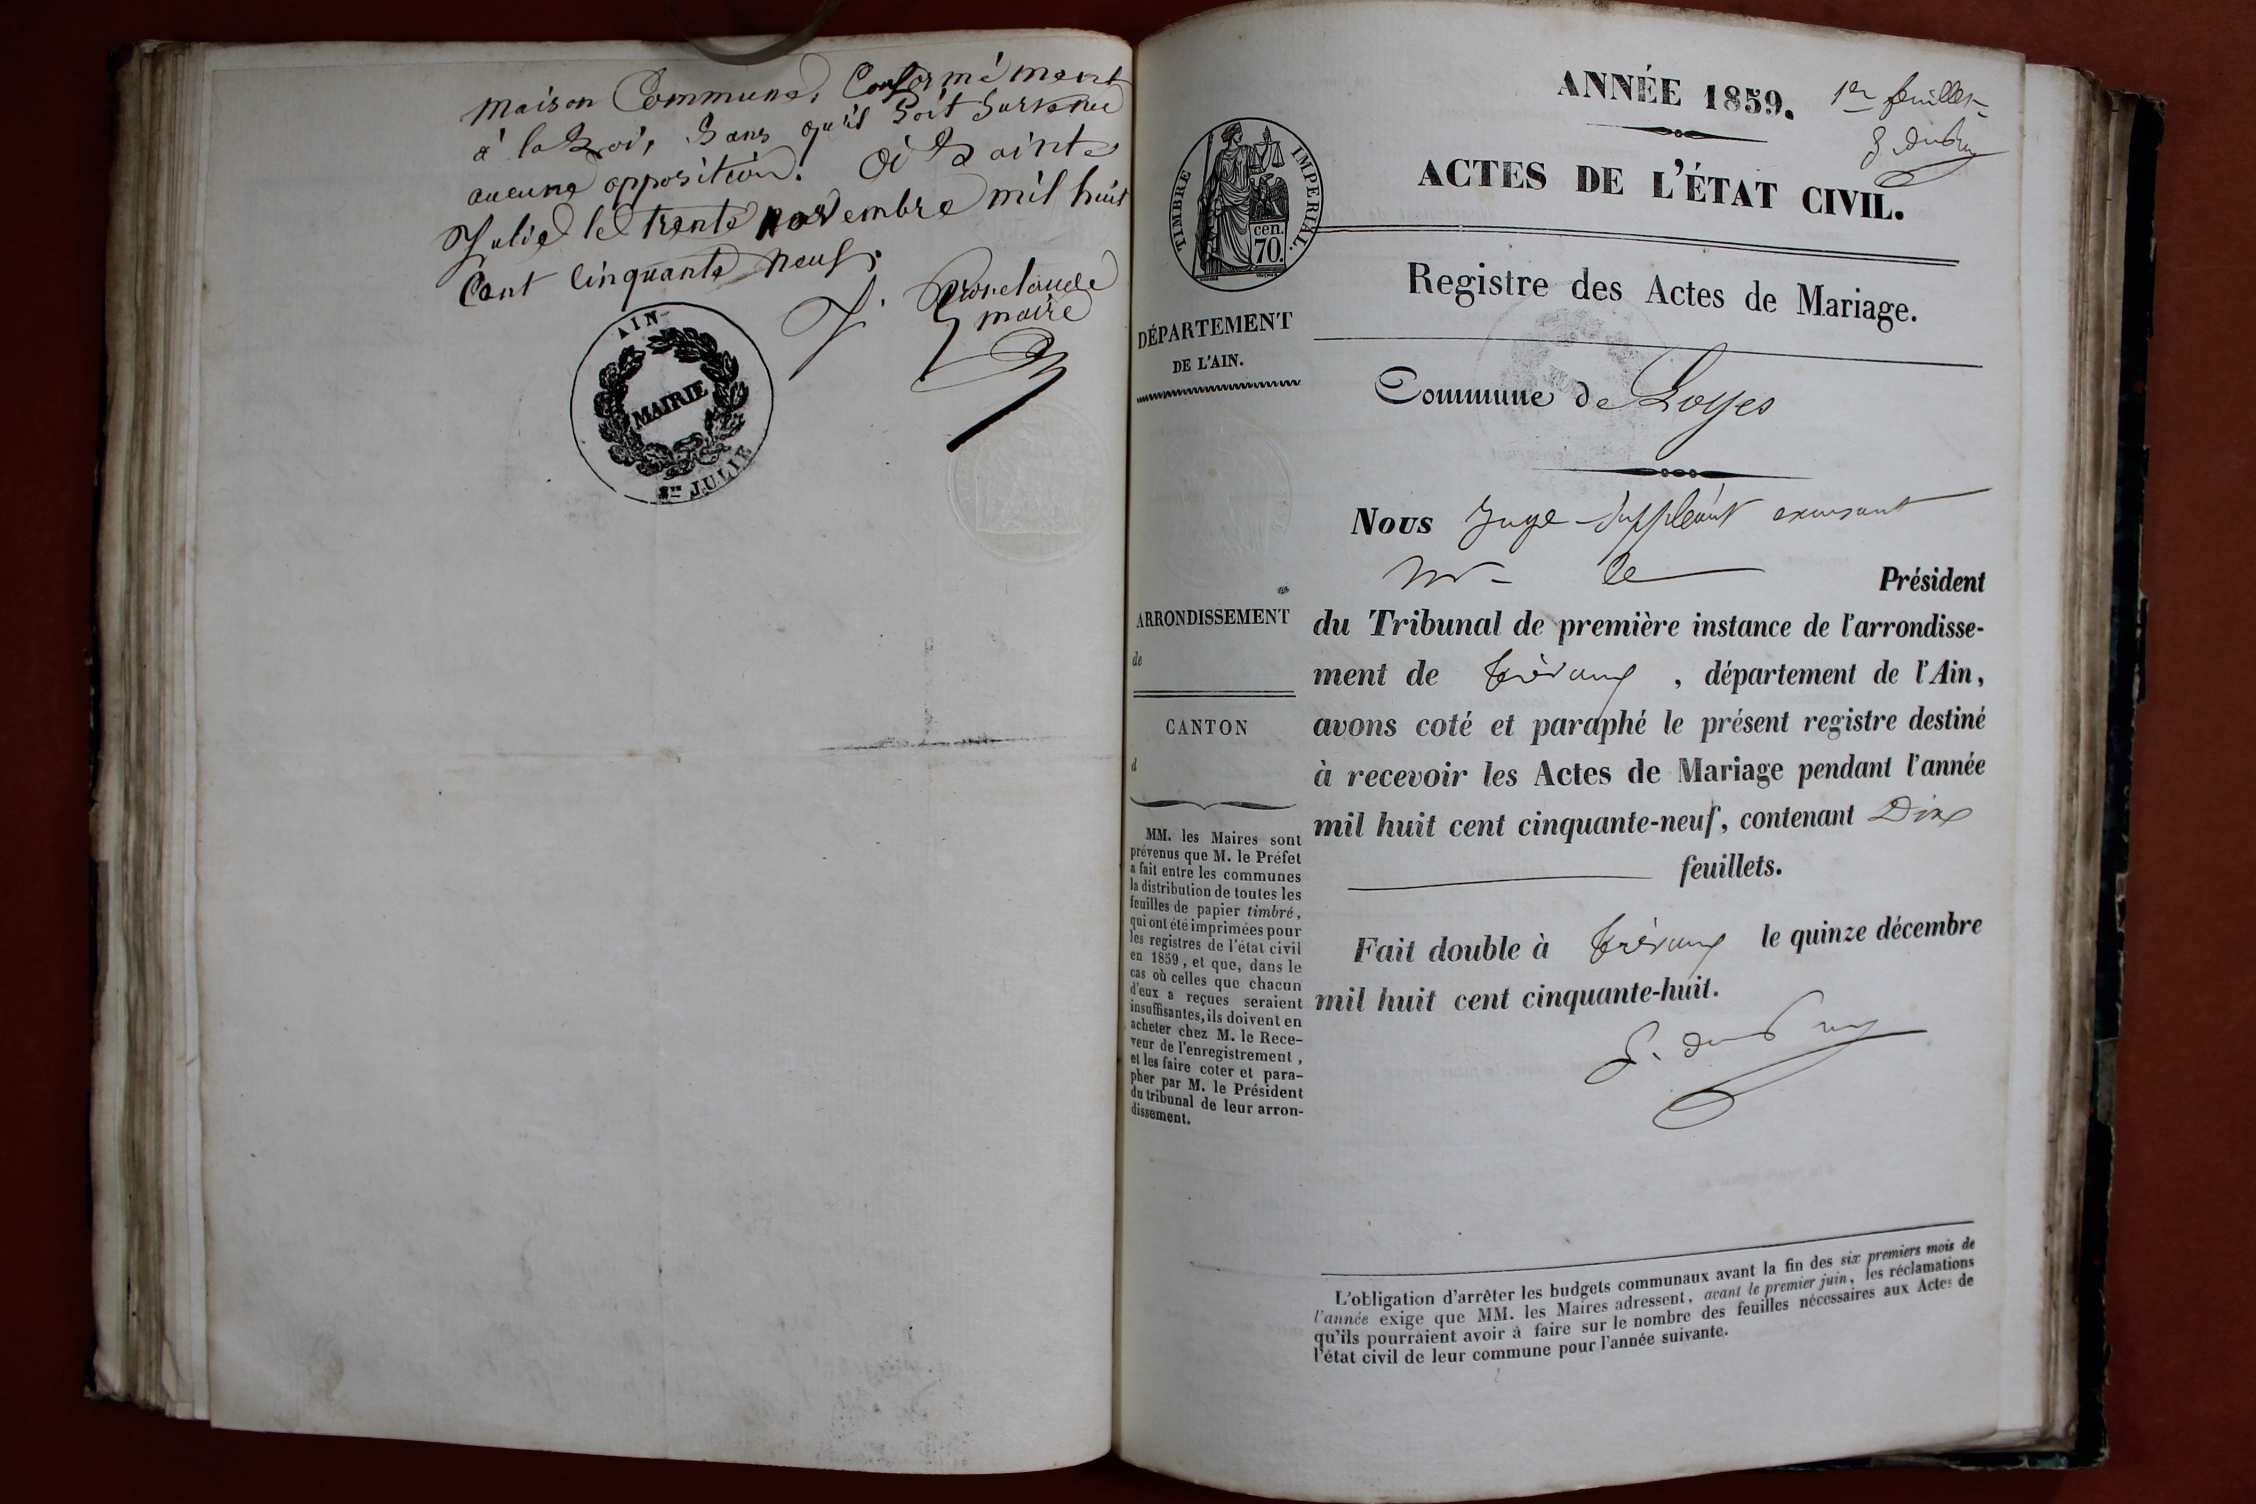 maison Commune, Conformément
à la Loi, Sans qu'il Soit Survenu
aucune opposition. à Sainte
Julie le trente novembre mil huit
Cent Cinquante neuf.
maire
AIN
MAIRIE
Ste JULIE
ANNÉE 1859.
1er feuillet
ACTES DE L'ÉTAT CIVIL.
TIMBRE IMPÉRIAL.
cen.
70.
Registre des Actes de Mariage.
DÉPARTEMENT
DE L'AIN.
Commune de Loyes
Nous Juge suppléant excusant
Mr le Président
du Tribunal de première instance de l'arrondisse-
ment de trévoux, département de l'Ain,
avons coté et paraphé le présent registre destiné
à recevoir les Actes de Mariage pendant l'année
mil huit cent cinquante-neuf, contenant Dix
feuillets.
Fait double à trévoux le quinze décembre
mil huit cent cinquante-huit.
ARRONDISSEMENT
de
CANTON
d
MM. les Maires sont
prévenus que M. le Préfet
a fait entre les communes
la distribution de toutes les
feuilles de papier timbré,
qui ont été imprimées pour
les registres de l'état civil
en 1859, et que, dans le
cas où celles que chacun
d'eux a reçues seraient
insuffisantes, ils doivent en
acheter chez M. le Rece-
veur de l'enregistrement,
et les faire coter et para-
pher par M. le Président
du tribunal de leur arron-
dissement.
L'obligation d'arrêter les budgets communaux avant la fin des six premiers mois de
l'année exige que MM. les Maires adressent, avant le premier juin, les réclamations
qu'ils pourraient avoir à faire sur le nombre des feuilles nécessaires aux Actes de
l'état civil de leur commune pour l'année suivante.